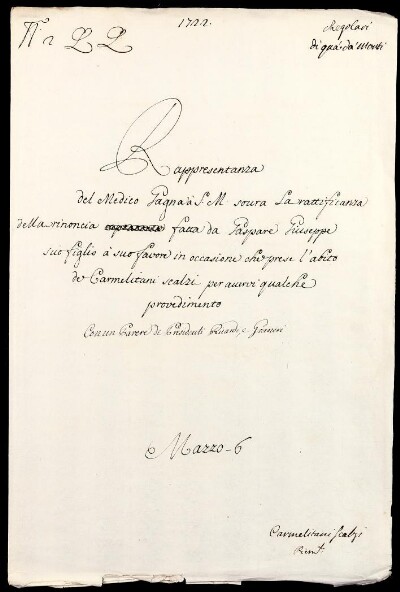 1722.
Regolari
di quà da' Monti
N. 2
Rappresentanza
del Medico Pagna à S. M. sovra La rattificanza
della rinoncia fatta da Gaspare Giuseppe
suo figlio à suo favore in occasione che prese l'abito
de Carmelitani scalzi per avervi qualche
provedimento
Con un Parere de Presidenti Ricardi, e
Marzo-6
Carmelitani scalzi